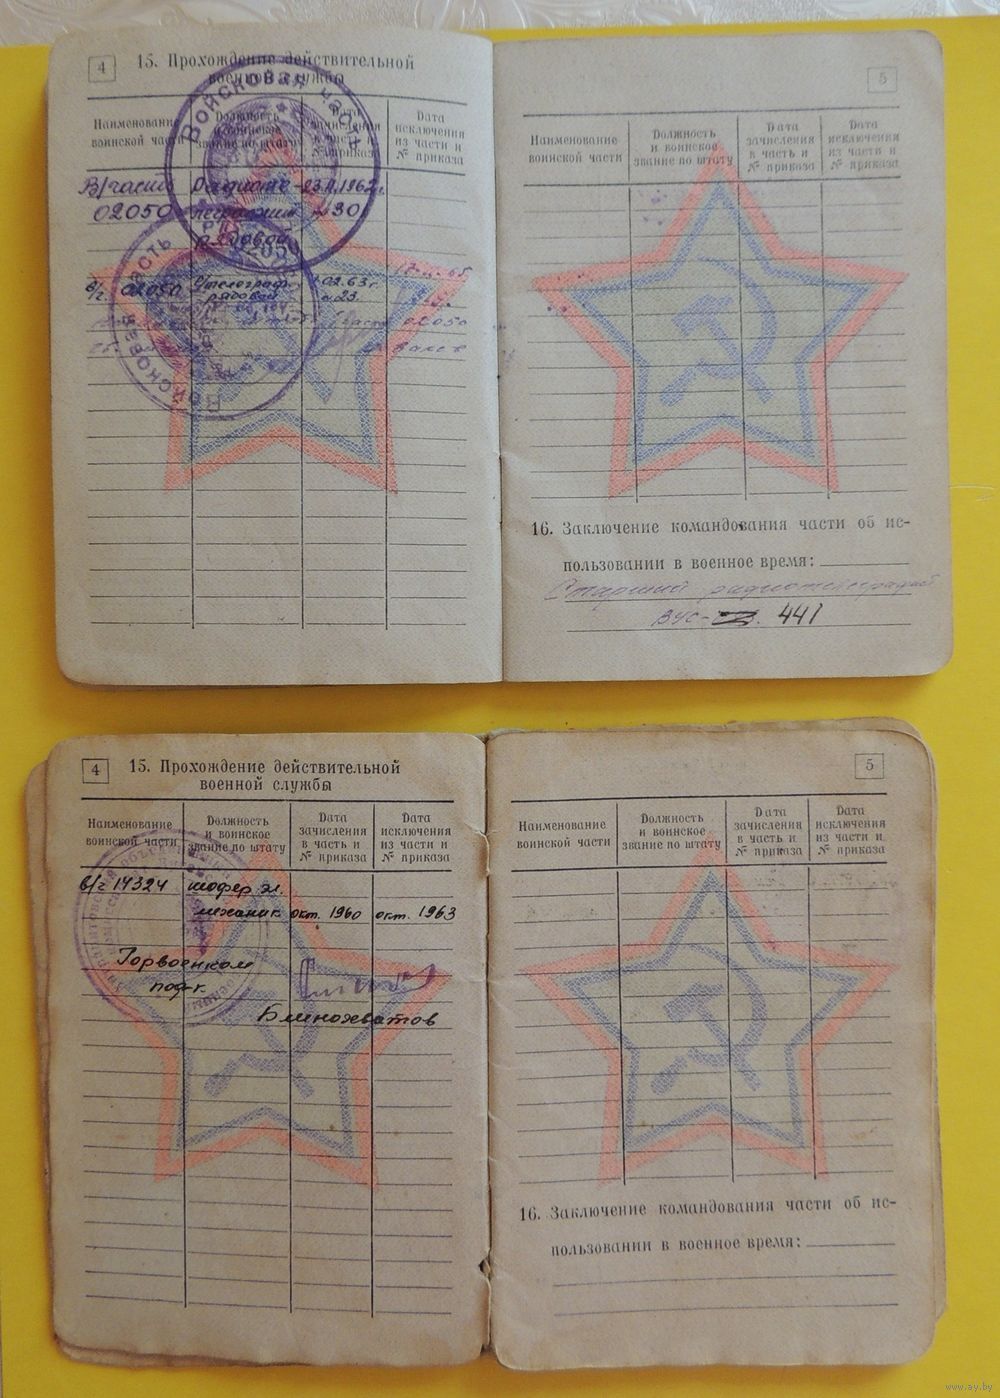 4
15. Прохождение действительной
военной службы
Наименование
воинской части
Должность
и воинское
звание по штату
Дата
зачисления
в часть и
№ приказа
Дата
исключения
из части и
№ приказа
Войсковая часть
В/часть
02050
23.11.1962г.
№ 30
рядовой
в/ч 02050
рядовой
02.63г.
№ 23
Войсковая часть
02050
5
Наименование
воинской части
Должность
и воинское
звание по штату
Дата
зачисления
в часть и
№ приказа
Дата
исключения
из части и
№ приказа
16. Заключение командования части об ис-
пользовании в военное время:
Старший радиотелеграфист
ВУС- 441
4
15. Прохождение действительной
военной службы
Наименование
воинской части
Должность
и воинское
звание по штату
Дата
зачисления
в часть и
№ приказа
Дата
исключения
из части и
№ приказа
в/ч 14324 шофер эл.
механик окт. 1960 окт. 1963
Горвоенком
под-к.
Блинохватов
5
Наименование
воинской части
Должность
и воинское
звание по штату
Дата
зачисления
в часть и
№ приказа
Дата
исключения
из части и
№ приказа
16. Заключение командования части об ис-
пользовании в военное время:
www.ay.by